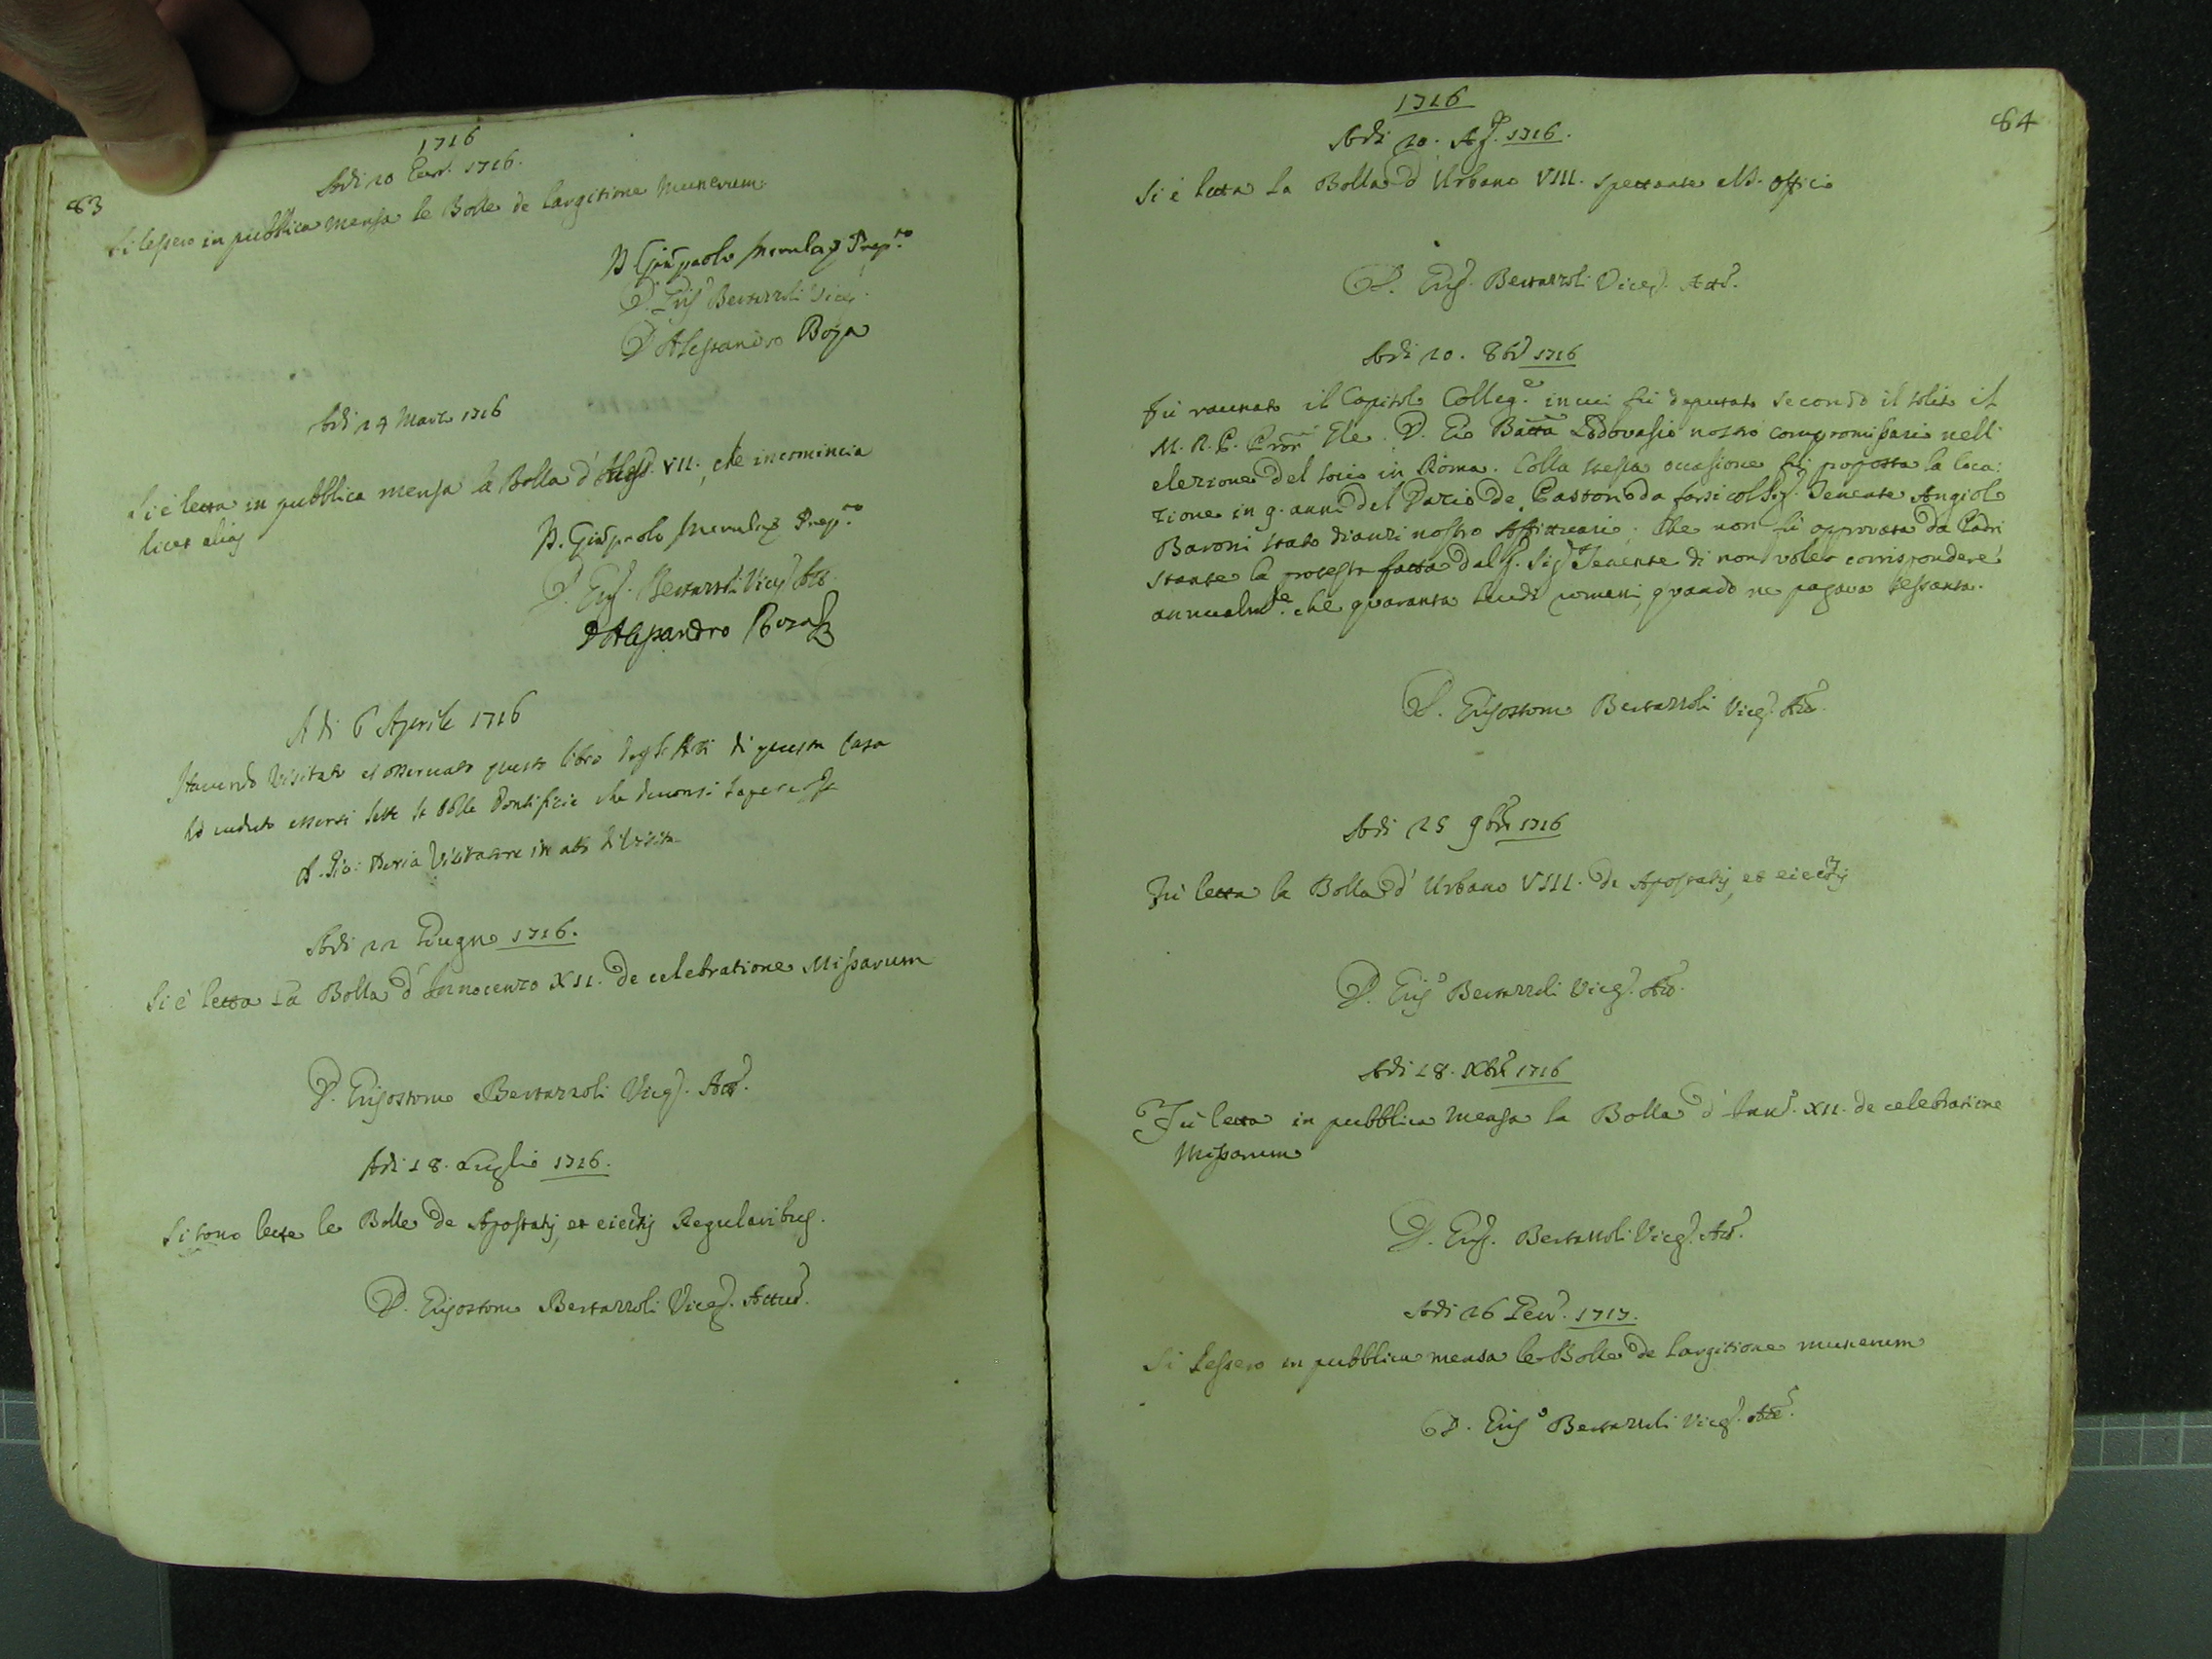 83
1716
Adi 20 Genn. 1716.
Si lessero in pubblica mensa le Bolle de largitione Munerum.
D. Gio paolo Prep.to
D. Gris. Bertazzoli Viceg.
D Alessandro Boza
Adi 24 Marzo 1716
Si è letta in pubblica mensa la Bolla d'Aless. VII., che incomincia
licet alias
D. Gio paolo Prep.to
D. Gris. Bertazzoli Viceg. Att.
D Alessandro Boza
A di 6 Aprile 1716
Havendo Visitato et osservato questo libro degl'Atti di questa Casa
hò veduto essersi lette le bolle Pontificie che devonsi
D. Gio: Doria Visitatore in atto di Visita
Adi 22 Giugno 1716.
Si è letta La Bolla d'Innocenzo XII. de celebratione Missarum
D. Grisostomo Bertazzoli Viceg. Att.
Adi 18. Luglio 1716.
Si sono lette le Bolle de Apostatis, et eiectis Regularibus.
D. Grisostomo Bertazzoli Viceg. Attuar.
84
1716
Adi 20. Ag. 1716.
Si è letta La Bolla d'Urbano VIII. spettante al S. Officio
D. Gris. Bertazzoli Viceg. Att.
Adi 20. 8bre 1716
Fù raunato il Capitolo Colleg.e in cui fù deputato secondo il solito il
M. R. P. D. Gio Batta Lodovasio nostro compromissario nell'
elezione del socio in Roma. Colla stessa occasione fù proposta la loca:
zione in 9. anni del Dazio de Pastori da farsi col Sig. Tenente Angiolo
Baroni stato dianzi nostro Affittuario; che non fù approvata da Padri
stante la protesta fatta dal Sig. Tenente di non voler corrispondere
annualm.te che quaranta scudi romani, quando ne pagava sessanta.
D. Grisostomo Bertazzoli Viceg. Att.
Adi 25 9bre 1716
Fù letta la Bolla d'Urbano VIII. de Apostatis, et eiectis
D. Gris. Bertazzoli Viceg. Att.
Adi 18. Xbre 1716
Fù letta in pubblica Mensa la Bolla d'Inn. XII. de celebratione
Missarum
D. Gris. Bertazzoli Viceg. Att.
Adi 26 Gen. 1717.
Si lessero in pubblica mensa le Bolle de largitione munerum
D. Gris. Bertazzoli Viceg. Att.